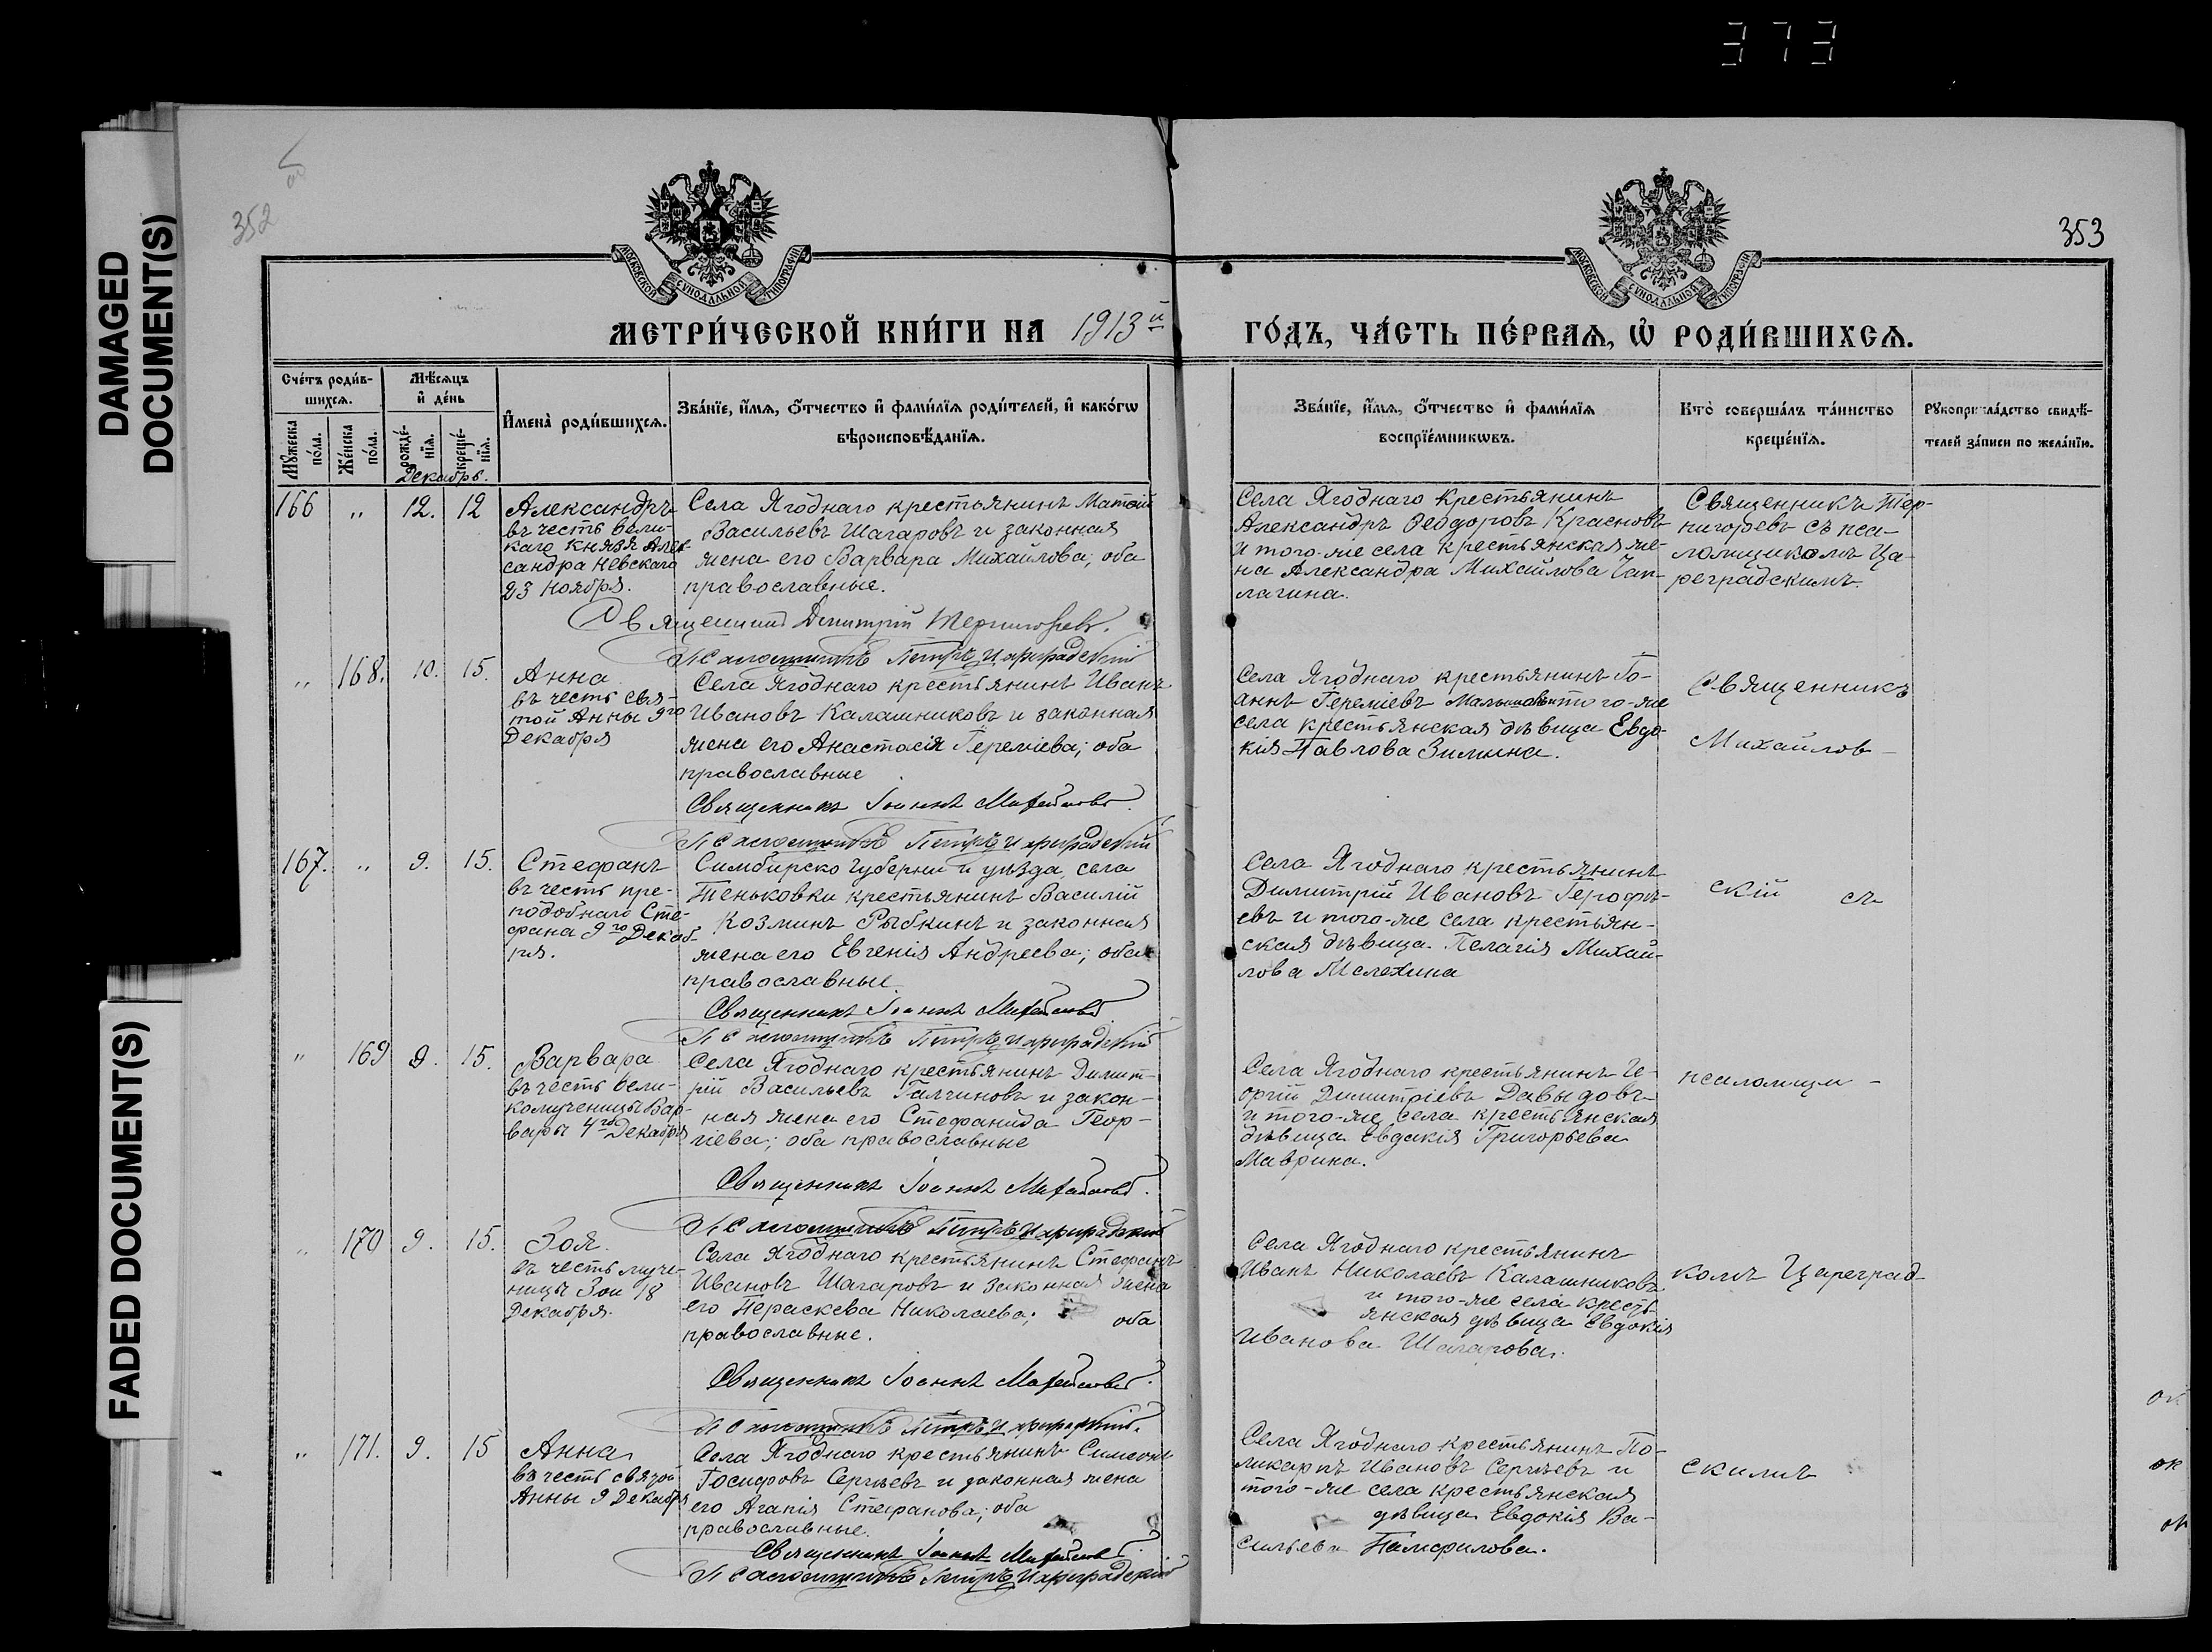 373
DAMAGED
DOCUMENT(S)
FADED DOCUMENT(S)
352
353
МОСКОВСКОЙ СУНОДАЛЬНОЙ ТИПОГРАФІИ
МОСКОВСКОЙ СУНОДАЛЬНОЙ ТИПОГРАФІИ
МЕТРИ́ЧЕСКОЙ КНИ́ГИ НА 1913й ГО́ДЪ, ЧА́СТЬ ПЕ́РВАѦ, Ѡ҆ РОДИ́ВШИХСѦ.
Сче́тъ роди́в-
шихсѧ.
Мꙋ́жеска
по́ла.
Же́нска
по́ла.
Мѣ́сѧцъ
и҆ де́нь
рожде́-
нїѧ.
креще́-
нїѧ.
Декабрь.
И҆мена̀ роди́вшихсѧ.
Зва́нїе, и҆́мѧ, ѻ҆́тчество и҆ фами́лїѧ роди́телей, и҆ како́гѡ
вѣроисповѣ́данїѧ.
Зва́нїе, и҆́мѧ, ѻ҆́тчество и҆ фами́лїѧ
воспрїе́мникѡвъ.
Кто̀ соверша́лъ та́инство
креще́нїѧ.
Рꙋкоприкла́дство свидѣ́-
телей за́писи по жела́нїю.
166 " 12. 12
Александръ
въ честь вели-
каго князя Алек-
сандра Невскаго
23 Ноября.
Села Ягоднаго крестьянинъ Матѳій
Васильевъ Шагаровъ и законная
жена его Варвара Михаилова; оба
православные.
Священникъ Димитрій Терпигорьевъ.
Псаломщикъ Петръ Цареградскій
Села Ягоднаго Крестьянинъ
Александръ Ѳеодоровъ Красновъ
и того-же села крестьянская же-
на Александра Михайлова Чап-
лагина.
Священникъ Тер-
пигорьевъ съ пса-
ломщикомъ Ца-
реградскимъ.
" 168. 10. 15.
Анна
въ честь свя-
той Анны 9го
Декабря
Села Ягоднаго крестьянинъ Иванъ
Ивановъ Калашниковъ и законная
жена его Анастасія Іереміева; оба
православные
Священникъ Іоаннъ Михайловъ
Псаломщикъ Петръ Цареградскій
Села Ягоднаго крестьянинъ Іо-
аннъ Іереміевъ того-же
села крестьянская дѣвица Евдо-
кія Павлова Зимина.
Священникъ
Михайлов-
167. " 9. 15.
Стефанъ
въ честь пре-
подобнаго Сте-
фана 9го Декаб-
ря.
Симбирско Губерни и уѣзда, села
Теньковки крестьянинъ Василій
Козминъ Рыбкинъ и законная
жена его Евгенія Андреева; оба
православные
Священникъ Іоаннъ Михайловъ
Псаломщикъ Петръ Цареградскій
Села Ягоднаго крестьянинъ
Димитрій Ивановъ Іерофѣ-
евъ и того-же села крестьян-
ская дѣвица Пелагія Михай-
лова Мелехина
скій съ
" 169 9. 15.
Варвара
въ честь вели-
комученицы Вар-
вары 4го Декабря
Села Ягоднаго крестьянинъ Димит-
рій Васильевъ Галчиновъ и закон-
ная жена его Стефанида Геор-
гіева; оба православные
Священникъ Іоаннъ Михайловъ.
Псаломщикъ Петръ Цареградскій
Села Ягоднаго крестьянинъ Ге-
оргій Димитріевъ Давыдовъ
и того-же села крестьянская
дѣвица Евдакія Григорьева
Маврина.
псаломщи-
" 170 9. 15.
Зоя.
въ честь муче-
ницы Зои 18
Декабря.
Села Ягоднаго крестьянинъ Стефанъ
Ивановъ Шагаровъ и законная жена
его Параскева Николаева; оба
православные.
Священникъ Іоаннъ Михайловъ.
Псаломщикъ Петръ Цареградскій.
Села Ягоднаго крестьянинъ
Иванъ Николаевъ Калашниковъ
и того-же села кресть-
янская дѣвица Евдокія
Иванова Шагарова.
комъ Цареград-
" 171. 9. 15
Анна
въ честь святой
Анны 9 Декабря
Села Ягоднаго крестьянинъ Симеонъ
Іосифовъ Сергѣевъ и законная жена
его Агапія Стефанова; оба
православные.
Священникъ Іоаннъ Михайловъ.
Псаломщикъ Петръ Цареградскій
Села Ягоднаго крестьянинъ По-
ликарпъ Ивановъ Сергѣевъ и
того-же села крестьянская
дѣвица Евдокія Ва-
сильева Памфилова.
скимъ
ок
ок
ок